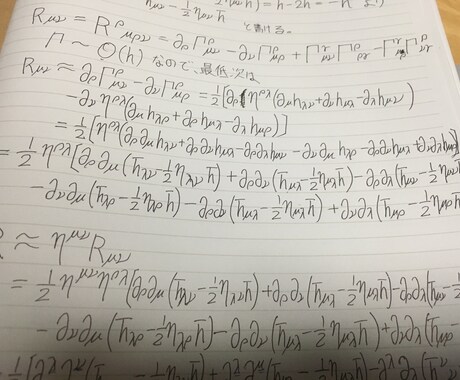 h_{μν} - \frac{1}{2}η_{μν} h) = h - 2h = -h より
と書ける。
R_{μν} = R^ρ_{μρν} = ∂_ρΓ^ρ_{μν} - ∂_νΓ^ρ_{μρ} + Γ^r_{μν}Γ^ρ_{ρr} - Γ^r_{μρ}Γ^ρ_{νr}
Γ ~ O(h) なので、最低次は
R_{μν} ≈ ∂_ρΓ^ρ_{μν} - ∂_νΓ^ρ_{μρ} = \frac{1}{2}[∂_ρ{η^{ρλ}(∂_μh_{λν} + ∂_νh_{μλ} - ∂_λh_{μν})
- ∂_νη^{ρλ}(∂_μh_{λρ} + ∂_ρh_{μλ} - ∂_λh_{μρ})]
= \frac{1}{2}[η^{ρλ}(∂_ρ∂_μh_{λν} + ∂_ρ∂_νh_{μλ} - ∂_ρ∂_λh_{μν} - ∂_ν∂_μh_{λρ} - ∂_ρ∂_νh_{μλ} + ∂_ν∂_λh_{μρ})]
= \frac{1}{2}η^{ρλ}[∂_ρ∂_μ(\bar{h}_{λν} - \frac{1}{2}η_{λν}\bar{h}) + ∂_ρ∂_ν(\bar{h}_{μλ} - \frac{1}{2}η_{μλ}\bar{h}) - ∂_ρ∂_λ(\bar{h}_{μν} - \frac{1}{2}η_{μν}\bar{h})
- ∂_ν∂_μ(\bar{h}_{λρ} - \frac{1}{2}η_{λρ}\bar{h}) - ∂_ρ∂_ν(\bar{h}_{μλ} - \frac{1}{2}η_{μλ}\bar{h}) + ∂_ν∂_λ(\bar{h}_{μρ} - \frac{1}{2}η
R ≈ η^{μν}R_{μν}
= \frac{1}{2}η^{μν}η^{ρλ}[∂_ρ∂_μ(\bar{h}_{λν} - \frac{1}{2}η_{λν}\bar{h}) + ∂_ρ∂_ν(\bar{h}_{μλ} - \frac{1}{2}η_{μλ}\bar{h}) - ∂_ρ∂_λ(\bar{h}_{μν} - \frac{1}{2}
- ∂_ν∂_μ(\bar{h}_{λρ} - \frac{1}{2}η_{λρ}\bar{h}) - ∂_ρ∂_ν(\bar{h}_{μλ} - \frac{1}{2}η_{μλ}\bar{h}) + ∂_ν∂_λ(\bar{h}_{μρ} -